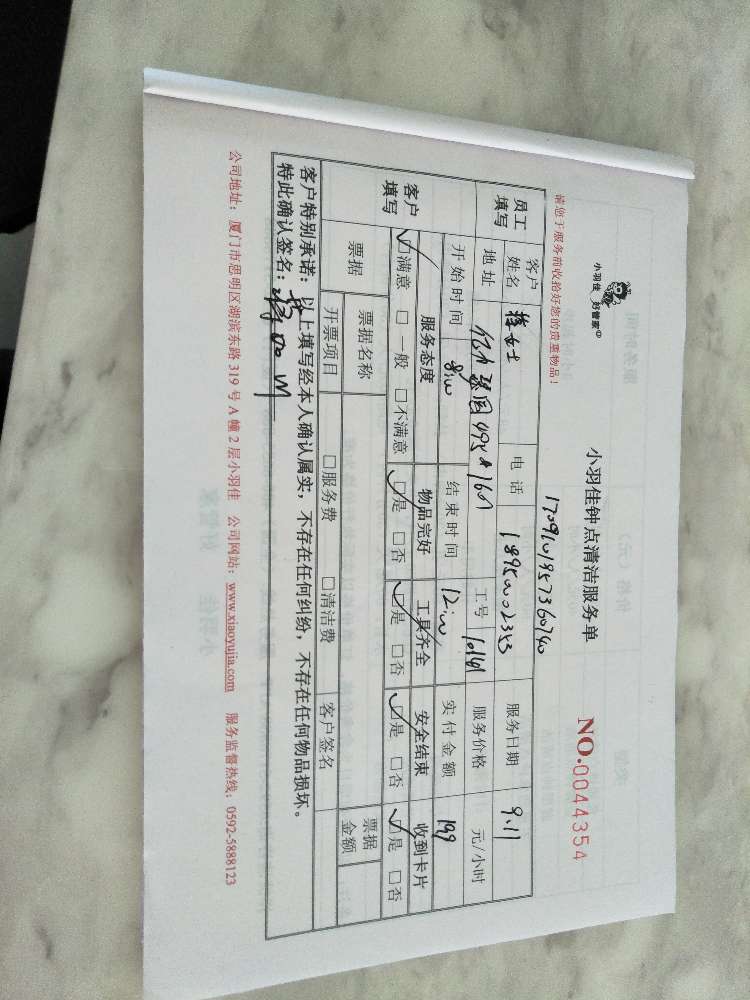 小羽佳 好管家®
小羽佳钟点清洁服务单
NO.0044354
请您于服务前收拾好您的贵重物品！
员工填写 客户姓名 女士 电话 服务日期 9.11
地址 工号 服务价格 元/小时
开始时间 结束时间 实付金额 199
客户填写 服务态度 物品完好 工具齐全 安全结束 收到卡片
☑满意 □一般 □不满意 ☑是 □否 ☑是 □否 ☑是 □否 ☑是 □否
票据 票据名称 票据金额
开票项目 □服务费 □清洁费 客户签名
客户特别承诺：以上填写经本人确认属实，不存在任何纠纷，不存在任何物品损坏。
特此确认签名：
公司地址：厦门市思明区湖滨东路 319 号 A 幢 2 层小羽佳 公司网站：www.xiaoyujia.com 服务监督热线：0592-5888123